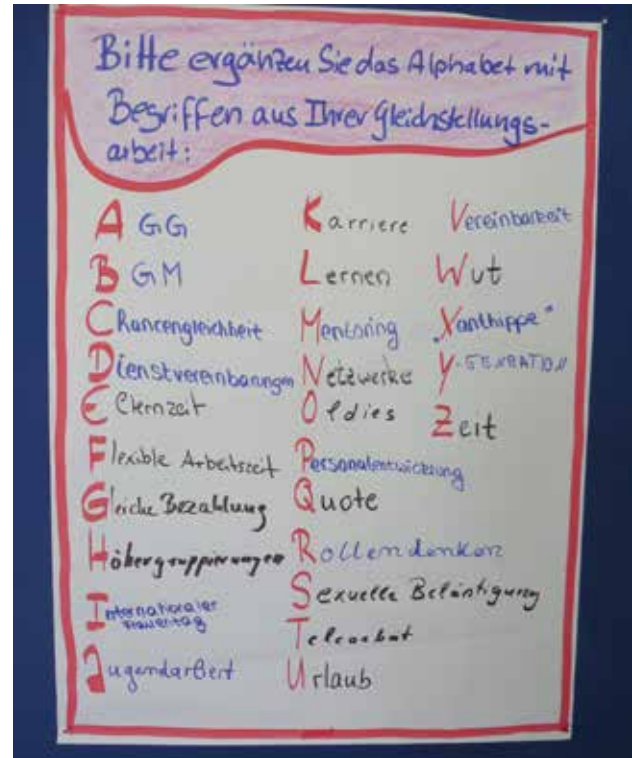 Bitte ergänzen Sie das Alphabet mit
Begriffen aus Ihrer Gleichstellungs-
arbeit:
AGG
BGM
Chancengleichheit
Dienstvereinbarungen
Elternzeit
Flexible Arbeitszeit
Gleiche Bezahlung
Höhergruppierungen
Internationaler
Frauentag
Jugendarbeit
Karriere
Lernen
Mentoring
Netzwerke
Oldies
Personalentwicklung
Quote
Rollendenken
Sexuelle Belästigung
Telearbeit
Urlaub
Vereinbarkeit
Wut
„Xanthippe"
Y-GENERATION
Zeit